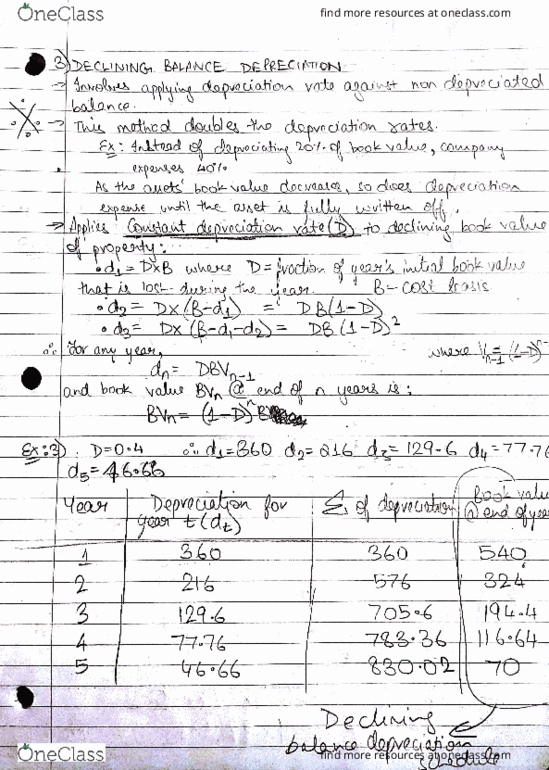 OneClass
find more resources at oneclass.com
3) DECLINING BALANCE DEPRECIATION
→ Involves applying depreciation rate against non depreciated
balance.
→ This method doubles the depreciation rates.
Ex: Instead of depreciating 20% of book value, company
expenses 40%
As the assets' book value decreases, so does depreciation
expense until the asset is fully written off.
→ Applies Constant depreciation rate (D) to declining book value
of property:
• d₁ = D×B where D = fraction of year's initial book value
that is lost during the year. B - cost basis
• d₂ = D×(B-d₁) = DB(1-D)
• d₃ = D×(B-d₁-d₂) = DB(1-D)²
∴ For any year, where
dₙ = DBVₙ₋₁
and book value BVₙ @ end of n years is:
BVₙ = (1-D)ⁿB
Ex:3) D=0.4 ∴ d₁=360 d₂=216 d₃=129.6 d₄=77.76
d₅=46.66
Year Depreciation for year t (dt) Σ of depreciation Book value @ end of year
1 360 360 540
2 216 576 324
3 129.6 705.6 194.4
4 77.76 783.36 116.64
5 46.66 830.02 70
Declining
balance depreciation
schedule
OneClass
find more resources at oneclass.com